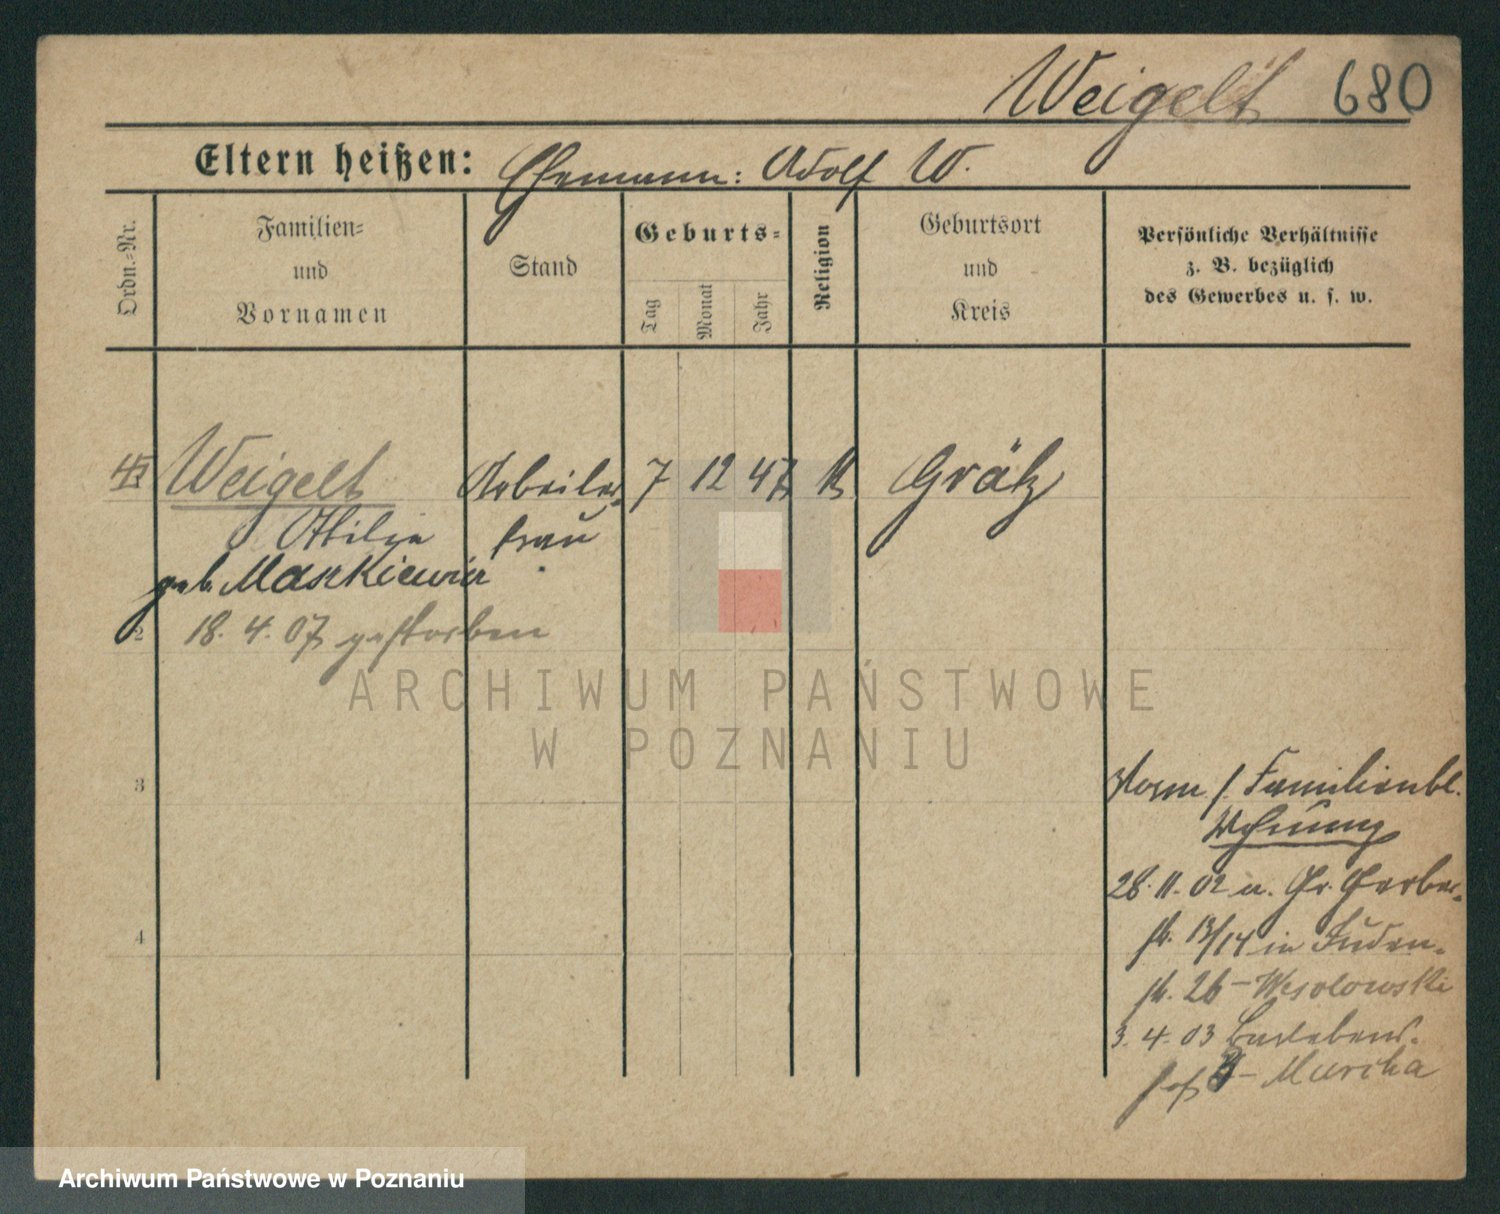 Weigelt 680
Eltern heißen: Ehemann: Adolf W.
Ordn.=Nr.
Familien=
und
Vornamen
Stand
Geburts=
Tag
Monat
Jahr
Religion
Geburtsort
und
Kreis
Persönliche Verhältnisse
z. B. bezüglich
des Gewerbes u. s. w.
Weigelt Arbeiter= 7 12 47 K Grätz
Ottilie frau
geb. Maskiewicz
2 18. 4. 07 gestorben
ARCHIWUM PAŃSTWOWE
W POZNANIU
3
Familienbl.
Wohnung
28. 11. 02 u. Gr. Gerber=
4
str. 13/14 in Juden=
str. 26 – Wesolowski
3. 4. 03
hof – Murcha
Archiwum Państwowe w Poznaniu